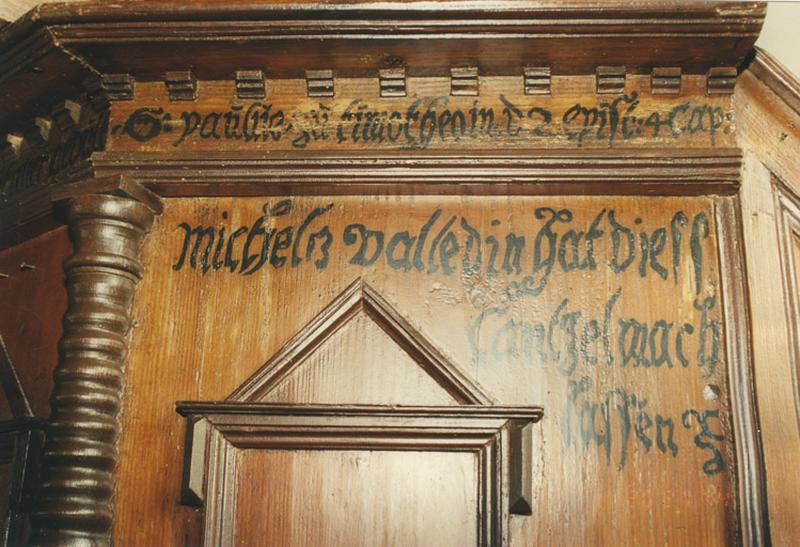 S: paulus zu timotheo in d 2 epist: 4 Cap:
michels valledin hat diess
Cantzel mach
lassen